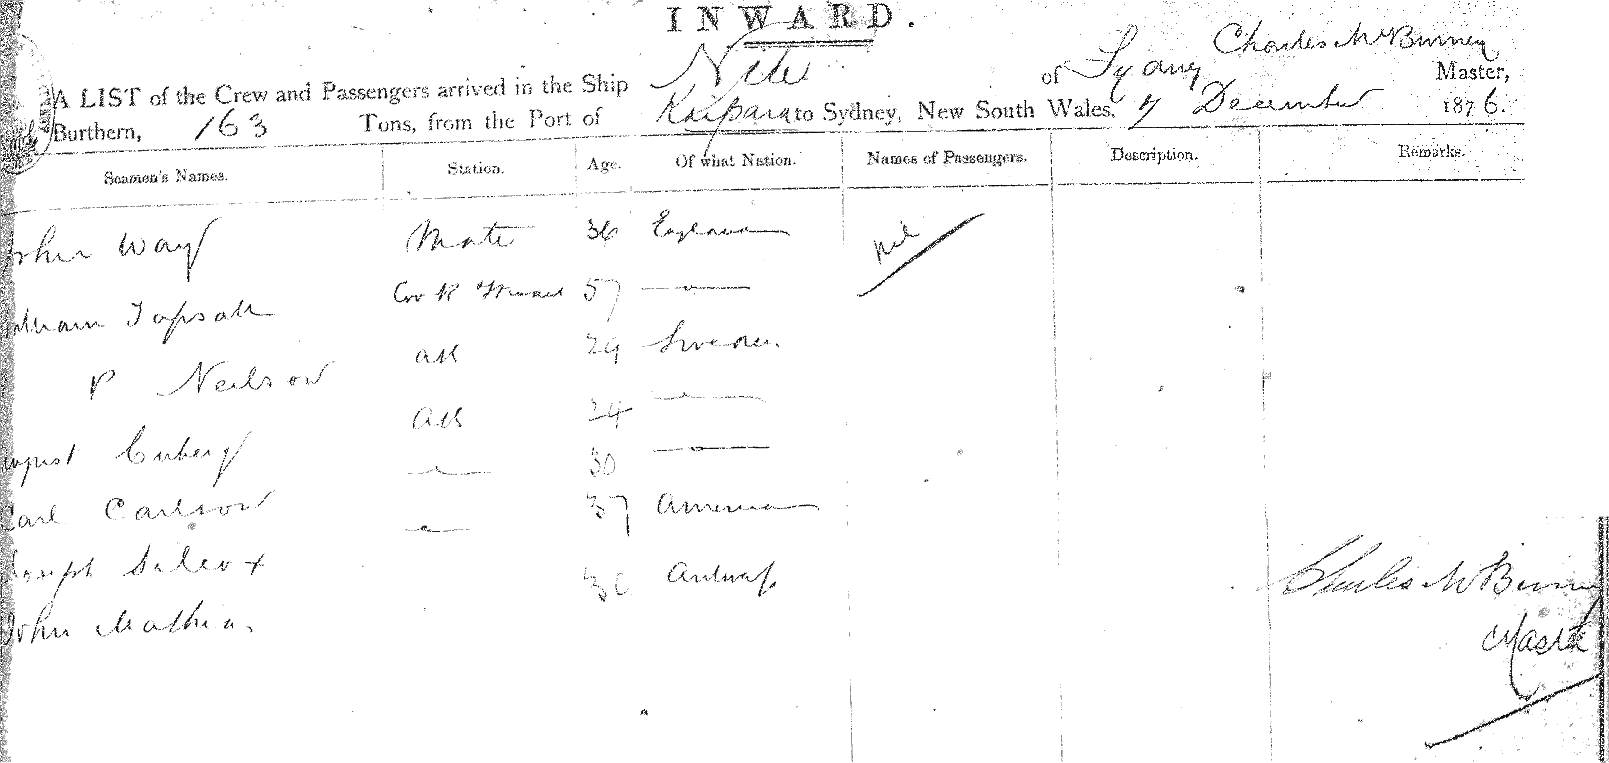 INWARD.
Charles McBurney
A LIST of the Crew and Passengers arrived in the Ship of Sydney Master,
Burthern, 163 Tons, from the Port of Kaipara to Sydney, New South Wales, 7 December 1876.
Seamen's Names. Station. Age. Of what Nation. Names of Passengers. Description. Remarks.
John Way Mate 36 England nil
William Tapsall Cook 57 — " —
P Neilson AB 29 Sweden
August AB 24 — " —
Carl Carlson — " — 30 — " —
Joseph Silcox — " — 37 America
John Mathia. 36 Antwerp
Charles McBurney
Master